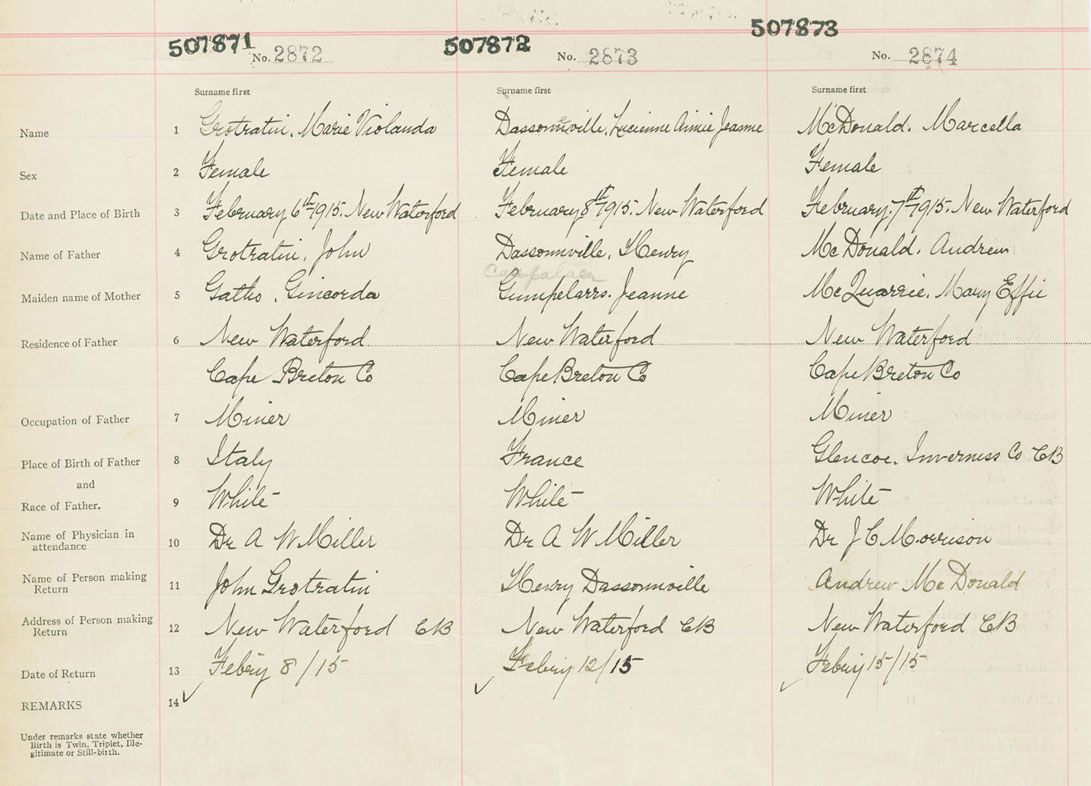 507871 507872 507873
No. 2872 No. 2873 No. 2874
Surname first Surname first Surname first
Name 1 Grotratin, Marie Violanda Dassonville, Lucienne Aimie Jeanne McDonald. Marcella
Sex 2 Female Female Female
Date and Place of Birth 3 February 6th 1915. New Waterford February 8th 1915. New Waterford February. 7th 1915. New Waterford
Name of Father 4 Grotratin, John Dassonville, Henry McDonald. Andrew
Maiden name of Mother 5 Gatho, Gincorda Gumpelarrs. Jeanne McQuarrie. Mary Effie
Residence of Father 6 New Waterford New Waterford New Waterford
Cape Breton Co Cape Breton Co Cape Breton Co
Occupation of Father 7 Miner Miner Miner
Place of Birth of Father 8 Italy France Glencoe. Inverness Co CB
and
Race of Father. 9 White White White
Name of Physician in attendance 10 Dr A W Miller Dr A W Miller Dr J C Morrison
Name of Person making Return 11 John Grotratin Henry Dassonville Andrew McDonald
Address of Person making Return 12 New Waterford CB New Waterford CB New Waterford CB
Date of Return 13 Febry 8/15 Febry 12/15 Febry 15/15
REMARKS 14
Under remarks state whether
Birth is Twin, Triplet, Ille-
gitimate or Still-birth.